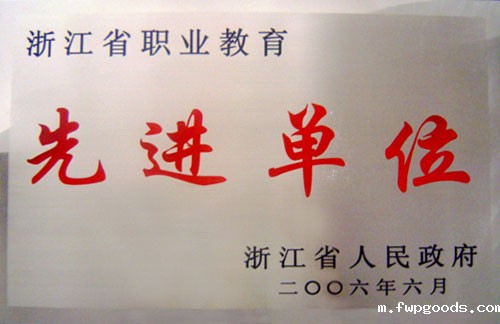 浙江省职业教育
先进单位
浙江省人民政府
二〇〇六年六月
m.fwpgoods.com